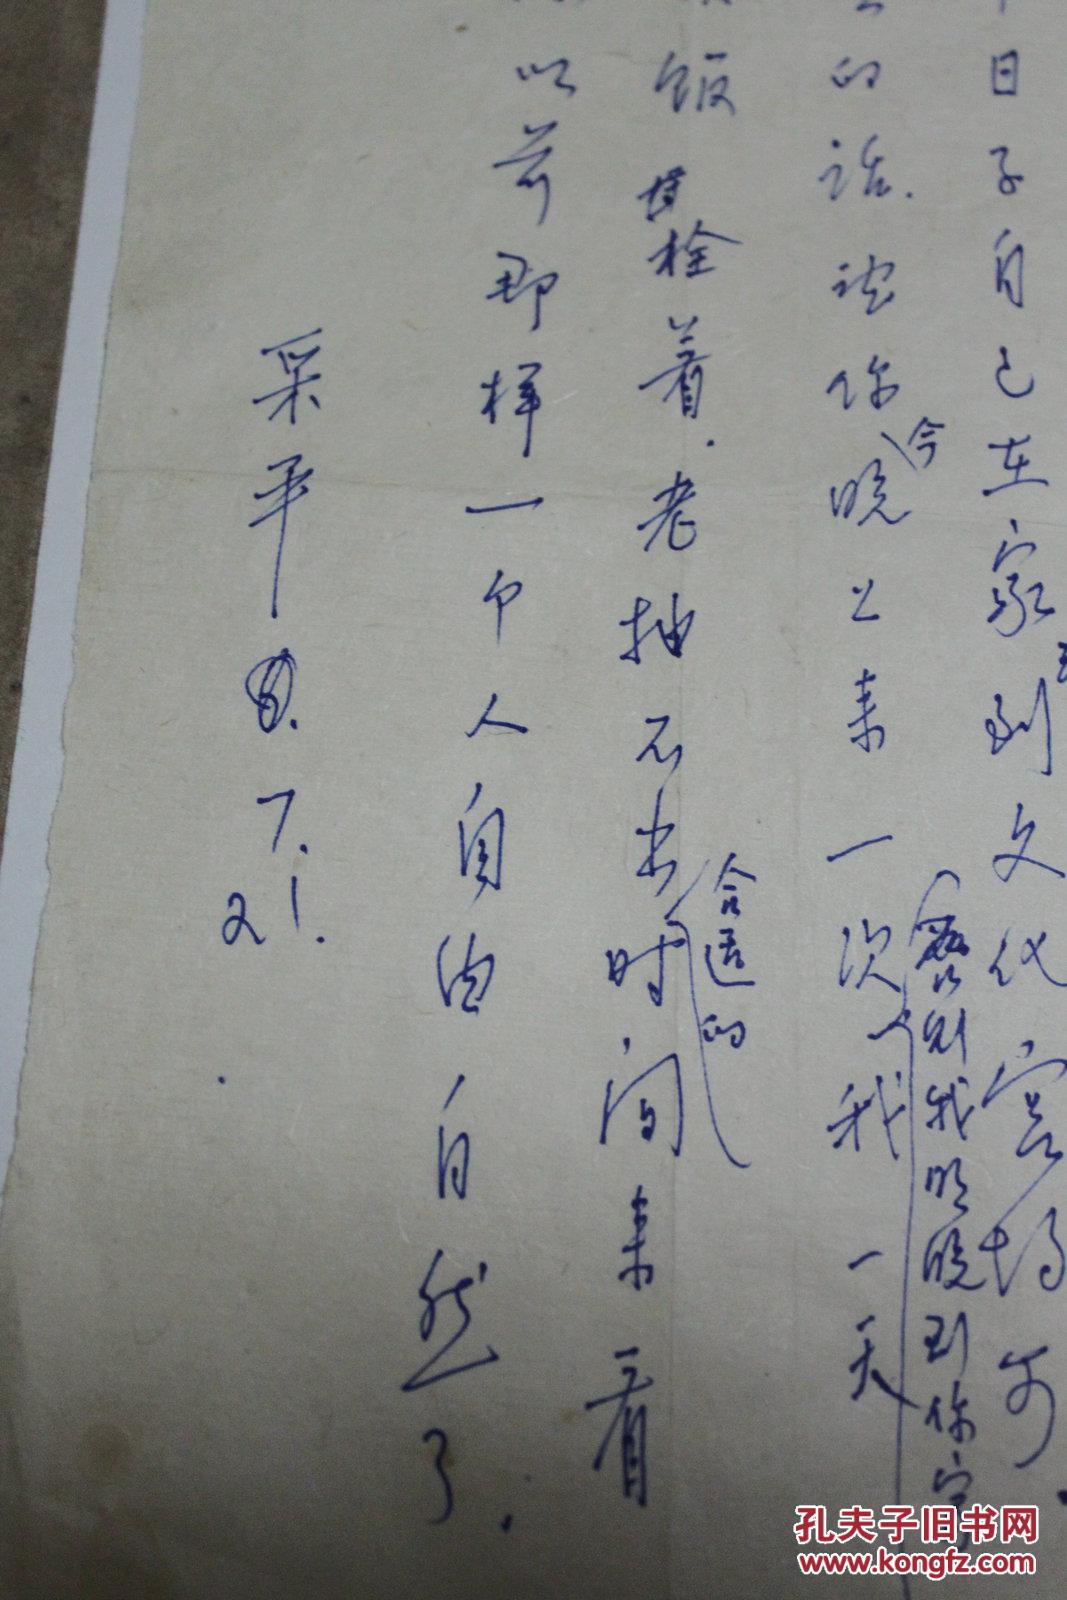 日子自己在家到文代宫
否则我明晚到你家
的话.请你今晚上来一次、我一天
饭拴着.老抽不出合适的时间来看
以前那样一个人自由自然了.
采平
8.
7.
21.
孔夫子旧书网
www.kongfz.com